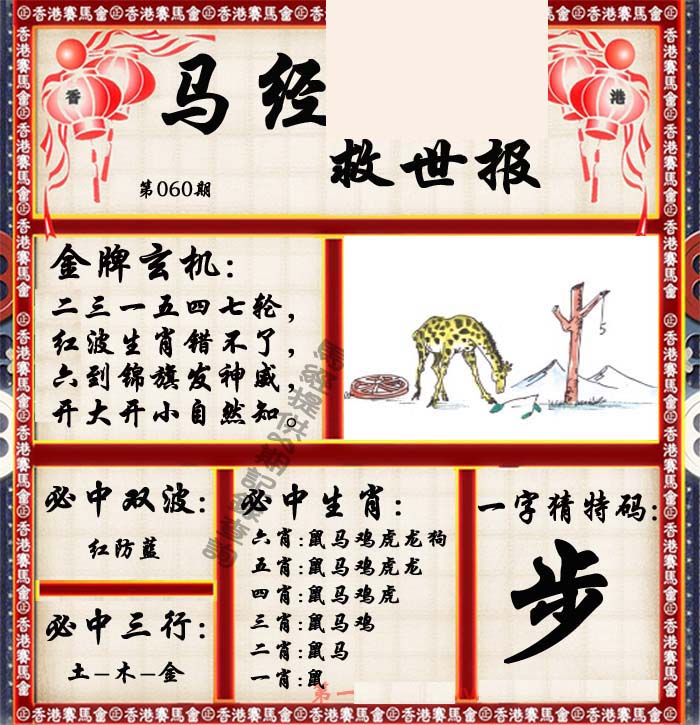 香港賽馬會
香 港
马经
救世报
第060期
金牌玄机:
二三一五四七轮,
红波生肖错不了,
六到锦旗发神威,
开大开小自然知。
5
必中双波:
红防蓝
必中三行:
土-木-金
必中生肖:
六肖:鼠马鸡虎龙狗
五肖:鼠马鸡虎龙
四肖:鼠马鸡虎
三肖:鼠马鸡
二肖:鼠马
一肖:鼠
一字猜特码:
步
第一